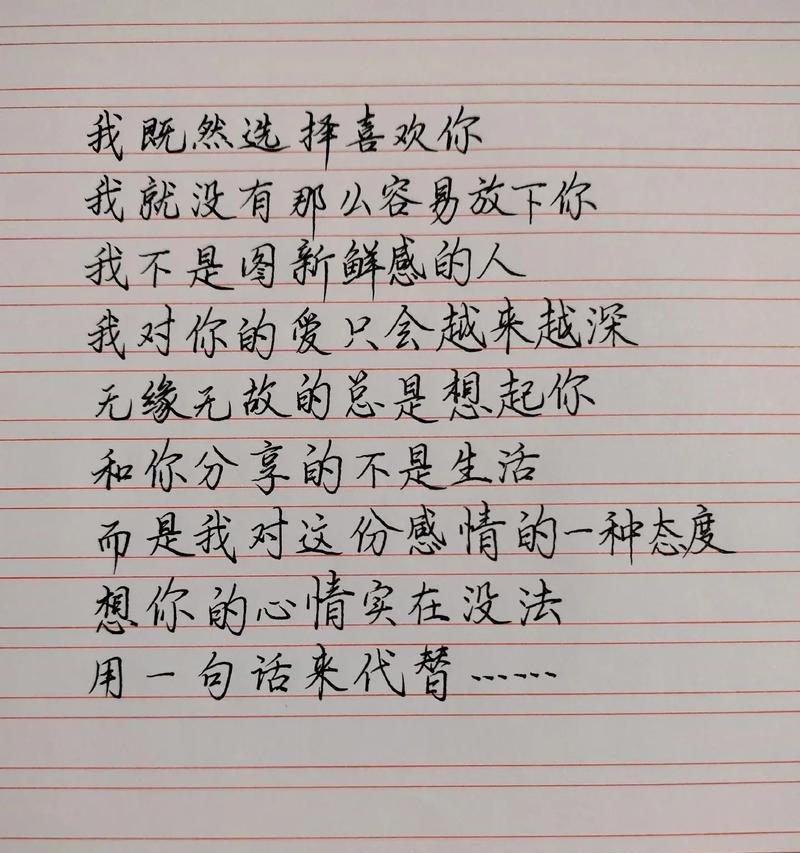 我既然选择喜欢你
我就没有那么容易放下你
我不是图新鲜感的人
我对你的爱只会越来越深
无缘无故的总是想起你
和你分享的不是生活
而是我对这份感情的一种态度
想你的心情实在没法
用一句话来代替……